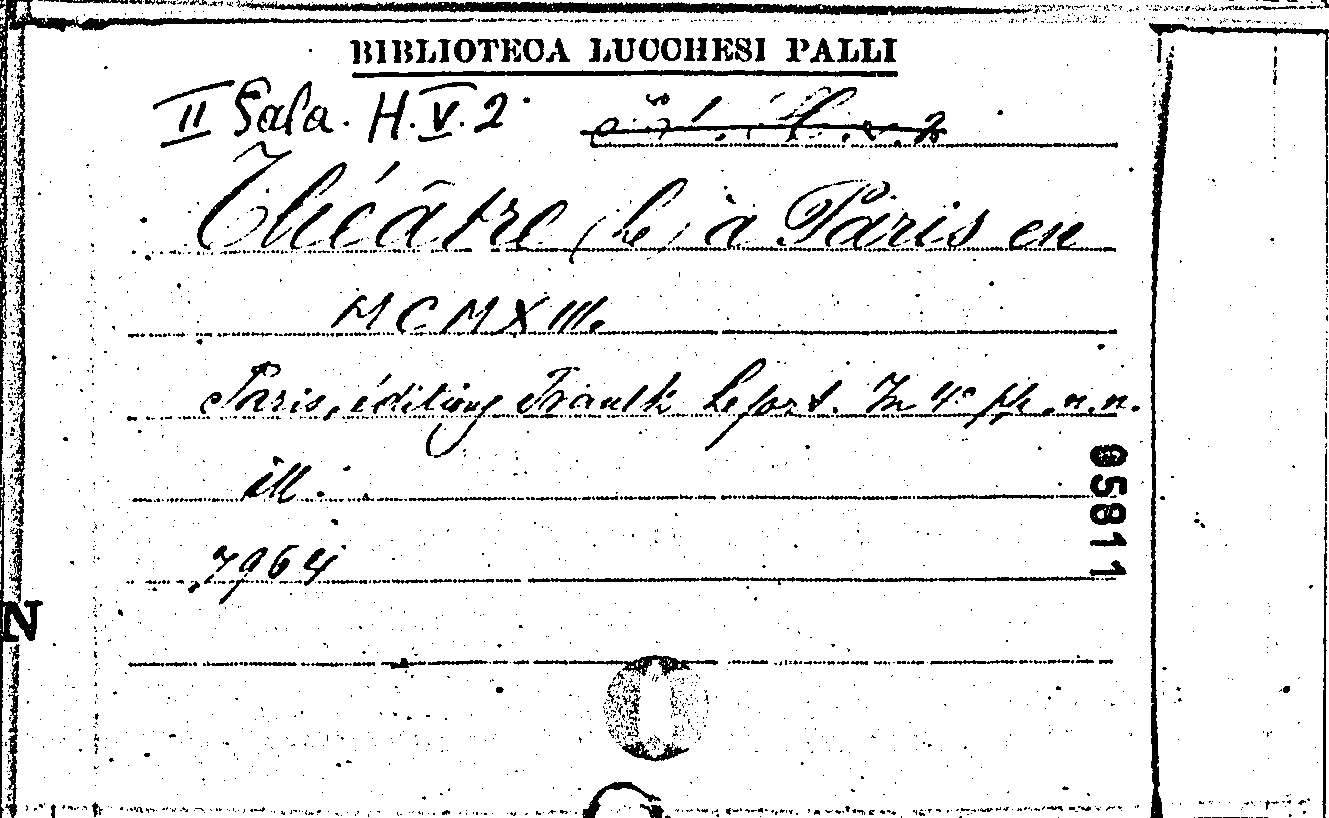 BIBLIOTECA LUCCHESI PALLI
II Sala. H.V.2.
Théâtre (Le) à Paris en
MCMXIII.
Paris, éditions Lefort. In 4° pp. n.n.
ill.
7964
05811
N